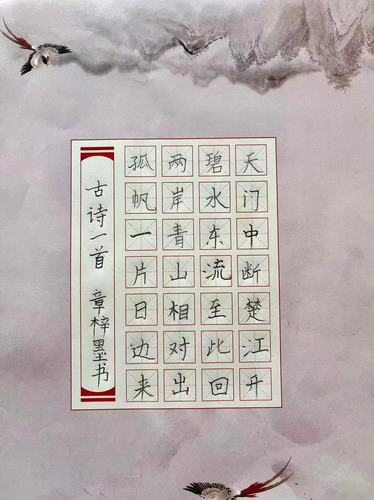 天门中断楚江开
碧水东流至此回
两岸青山相对出
孤帆一片日边来
古诗一首 章梓墨书